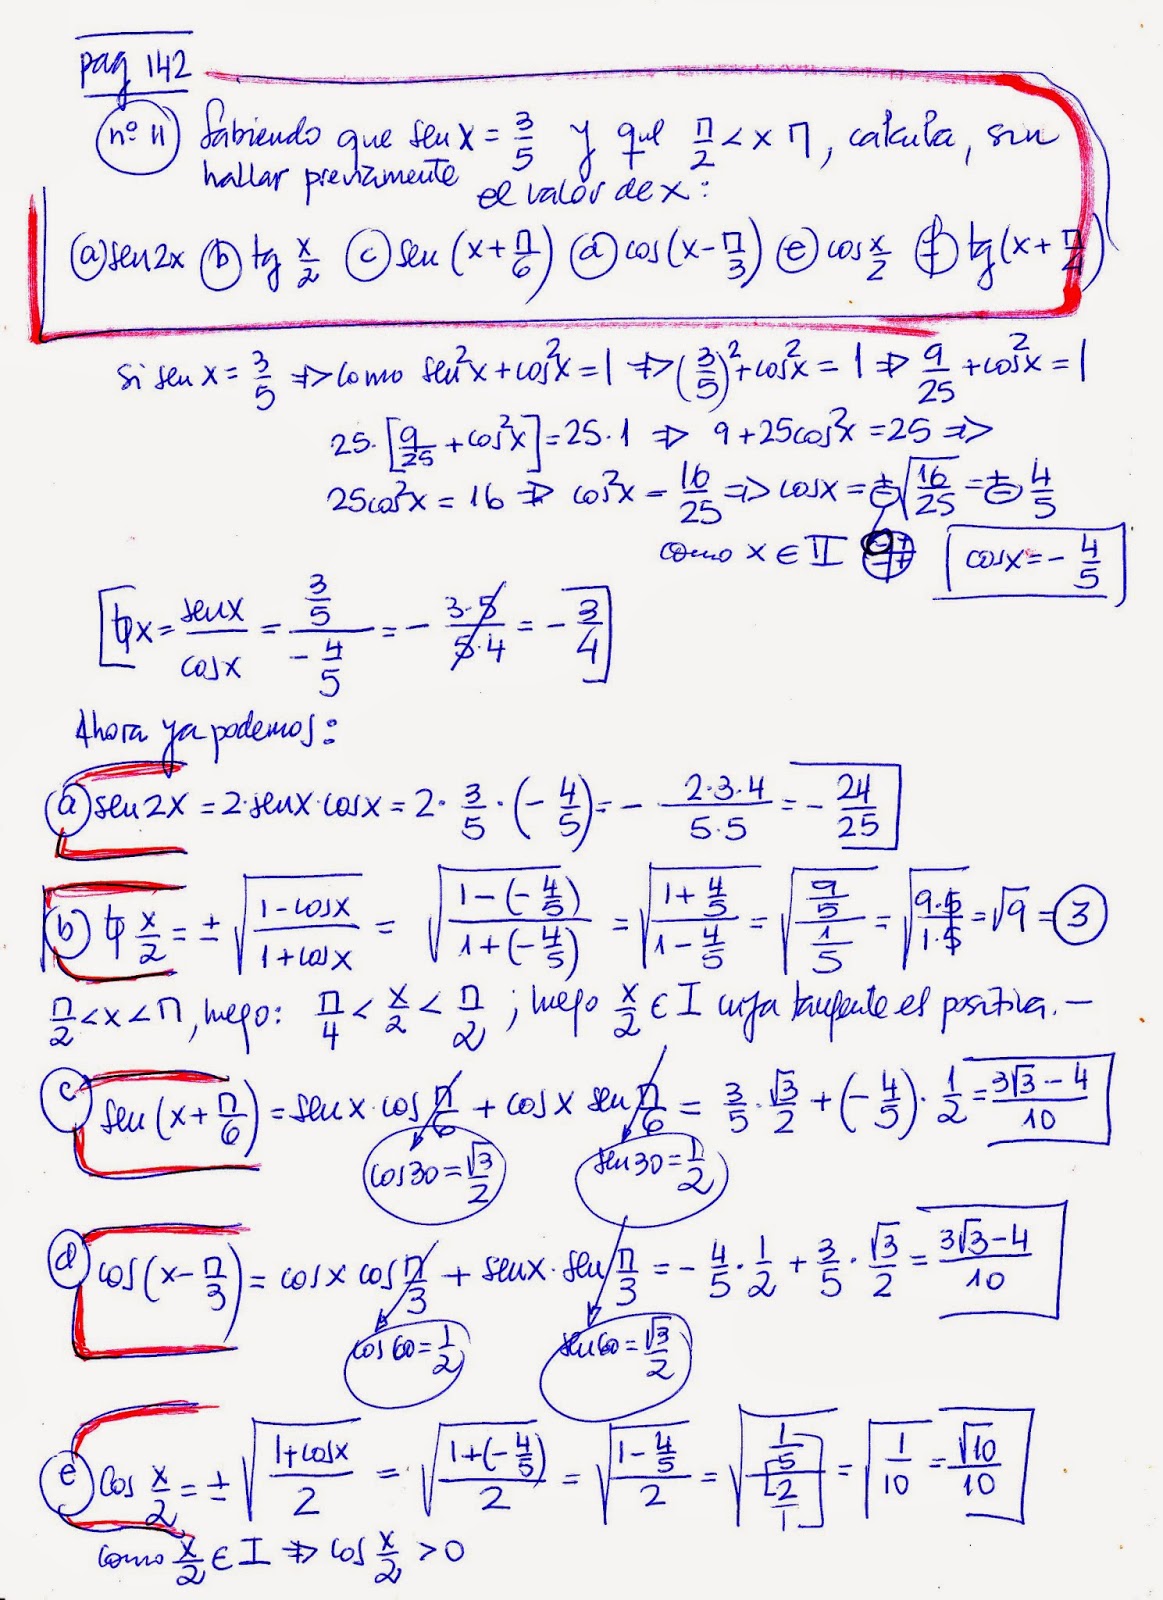 pag 142
nº 11 Sabiendo que sen x = 3/5 y que π/2 < x π, calcula, sin
hallar previamente el valor de x:
(a) sen 2x (b) tg x/2 (c) sen (x + π/6) (d) cos (x - π/3) (e) cos x/2 (f) tg (x + π/4)
Si sen x = 3/5 => como sen²x + cos²x = 1 => (3/5)² + cos²x = 1 => 9/25 + cos²x = 1
25·[9/25 + cos²x] = 25·1 => 9 + 25cos²x = 25 =>
25cos²x = 16 => cos²x = 16/25 => cos x = ±√(16/25) = ± 4/5
como x ∈ II cos x = - 4/5
[tg x = sen x / cos x = (3/5)/(- 4/5) = - 3·5/5·4 = - 3/4]
Ahora ya podemos:
(a) sen 2x = 2·sen x·cos x = 2· 3/5 ·(- 4/5) = - 2·3·4/5·5 = - 24/25
(b) tg x/2 = ± √((1-cos x)/(1+cos x)) = √((1-(-4/5))/(1+(-4/5))) = √((1+4/5)/(1-4/5)) = √((9/5)/(1/5)) = √(9·5/1·5) = √9 = 3
π/2 < x < π, luego: π/4 < x/2 < π/2 ; luego x/2 ∈ I cuya tangente es positiva. —
(c) sen (x + π/6) = sen x·cos π/6 + cos x sen π/6 = 3/5 · √3/2 + (- 4/5) · 1/2 = (3√3 - 4)/10
cos 30 = √3/2 sen 30 = 1/2
(d) cos (x - π/3) = cos x cos π/3 + sen x·sen π/3 = - 4/5 · 1/2 + 3/5 · √3/2 = (3√3 - 4)/10
cos 60 = 1/2 sen 60 = √3/2
(e) cos x/2 = ± √((1+cos x)/2) = √((1+(-4/5))/2) = √((1-4/5)/2) = √((1/5)/(2/1)) = √(1/10) = √10/10
como x/2 ∈ I => cos x/2 > 0